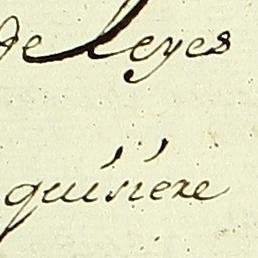 de leyes
quisiere